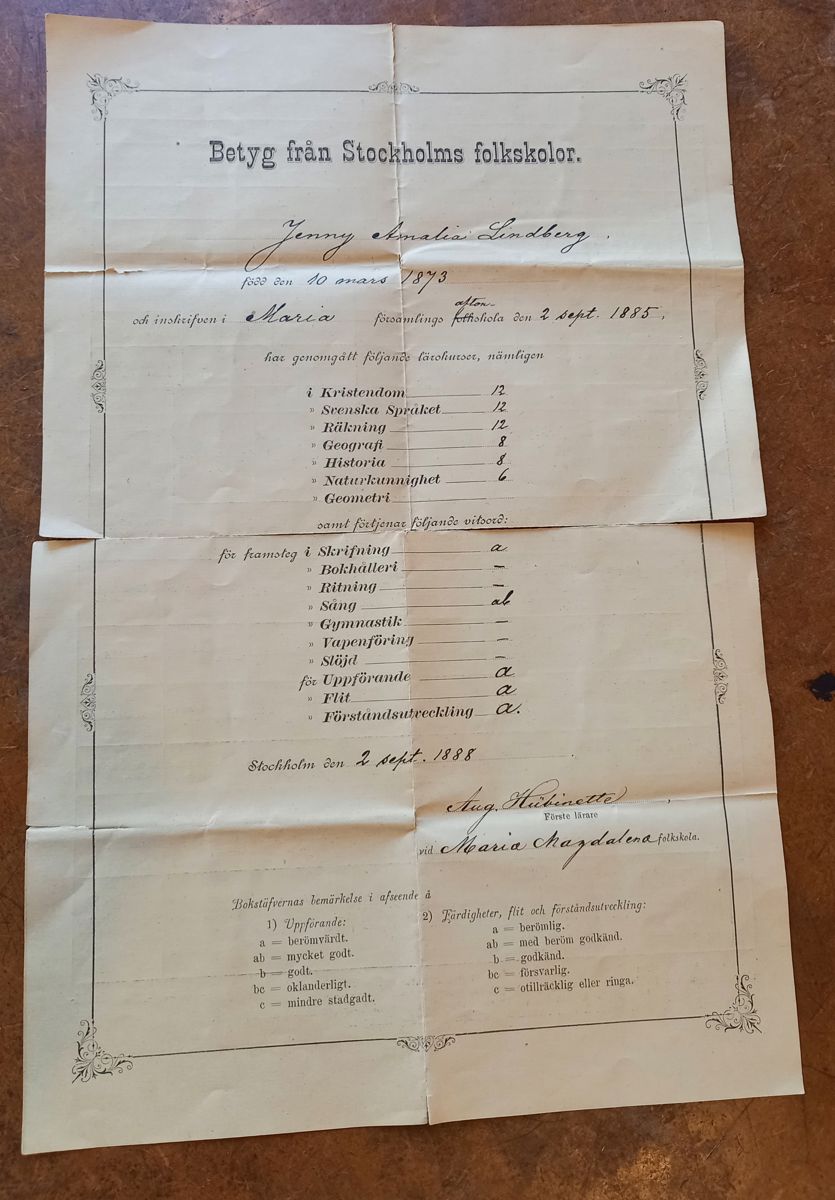 Betyg från Stockholms folkskolor.
Jenny Amalia Lindberg.
född den 10 mars 1873
och inskrifven i Maria församlings afton- folkskola den 2 sept. 1885,
har genomgått följande lärokurser, nämligen
i Kristendom 12
" Svenska Språket 12
" Räkning 12
" Geografi 8
" Historia 8
" Naturkunnighet 6
" Geometri
samt förtjenar följande vitsord:
för framsteg i Skrifning a
" Bokhålleri —
" Ritning —
" Sång ab
" Gymnastik —
" Vapenföring —
" Slöjd —
för Uppförande a
" Flit a
" Förståndsutveckling a.
Stockholm den 2 sept. 1888
Aug. Hübinette,
Förste lärare
vid Maria Magdalena folkskola.
Bokstäfvernas bemärkelse i afseende å
1) Uppförande:
a = berömvärdt.
ab = mycket godt.
b = godt.
bc = oklanderligt.
c = mindre stadgadt.
2) Färdigheter, flit och förståndsutveckling:
a = berömlig.
ab = med beröm godkänd.
b = godkänd.
bc = försvarlig.
c = otillräcklig eller ringa.